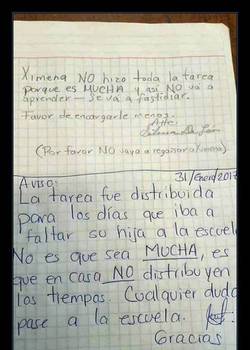 Ximena NO hizo toda la tarea
porque es MUCHA y así NO va a
aprender — se va a fastidiar.
Favor de encargarle menos.
Atte.
(Por favor NO vaya a regañar a Ximena)
Aviso:
31/Enero/2017
La tarea fue distribuida
para los días que iba a
faltar su hija a la escuela
No es que sea MUCHA, es
que en casa NO distribuyen
los tiempos. Cualquier duda
pase a la escuela.
Gracias